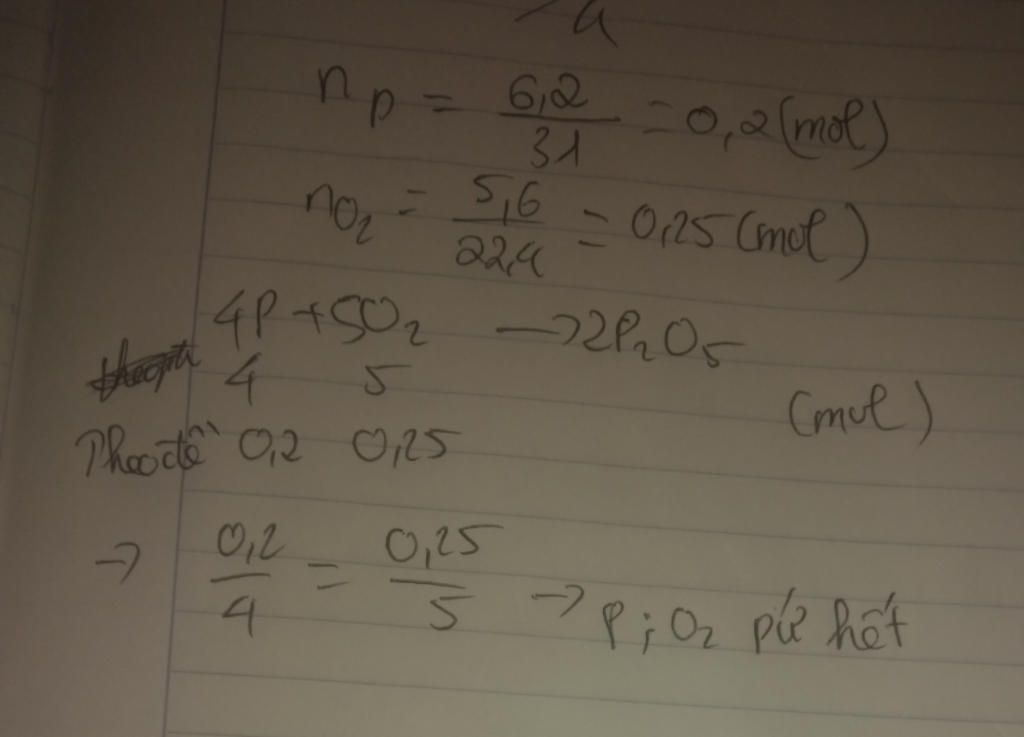 n_P = 6,2/31 = 0,2 (mol)
n_O₂ = 5,6/22,4 = 0,25 (mol)
4P + 5O₂ → 2P₂O₅
4 5
(mol)
Theo đề 0,2 0,25
→ 0,2/4 = 0,25/5 → P ; O₂ pứ hết